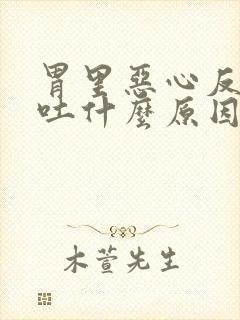 胃里恶心反
吐什麽原因
木萱先生